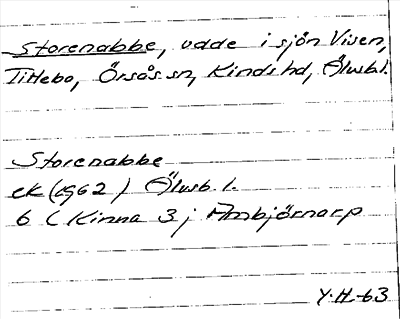 Storenabbe, udde i sjön Visen,
Tittebo, Örsås sn, Kinds hd, Älvsb. l.
Storenabbe
ek (1962) Älvsb. l.
6 C Kinna 3 j Ambjörnarp
Y.H.-63